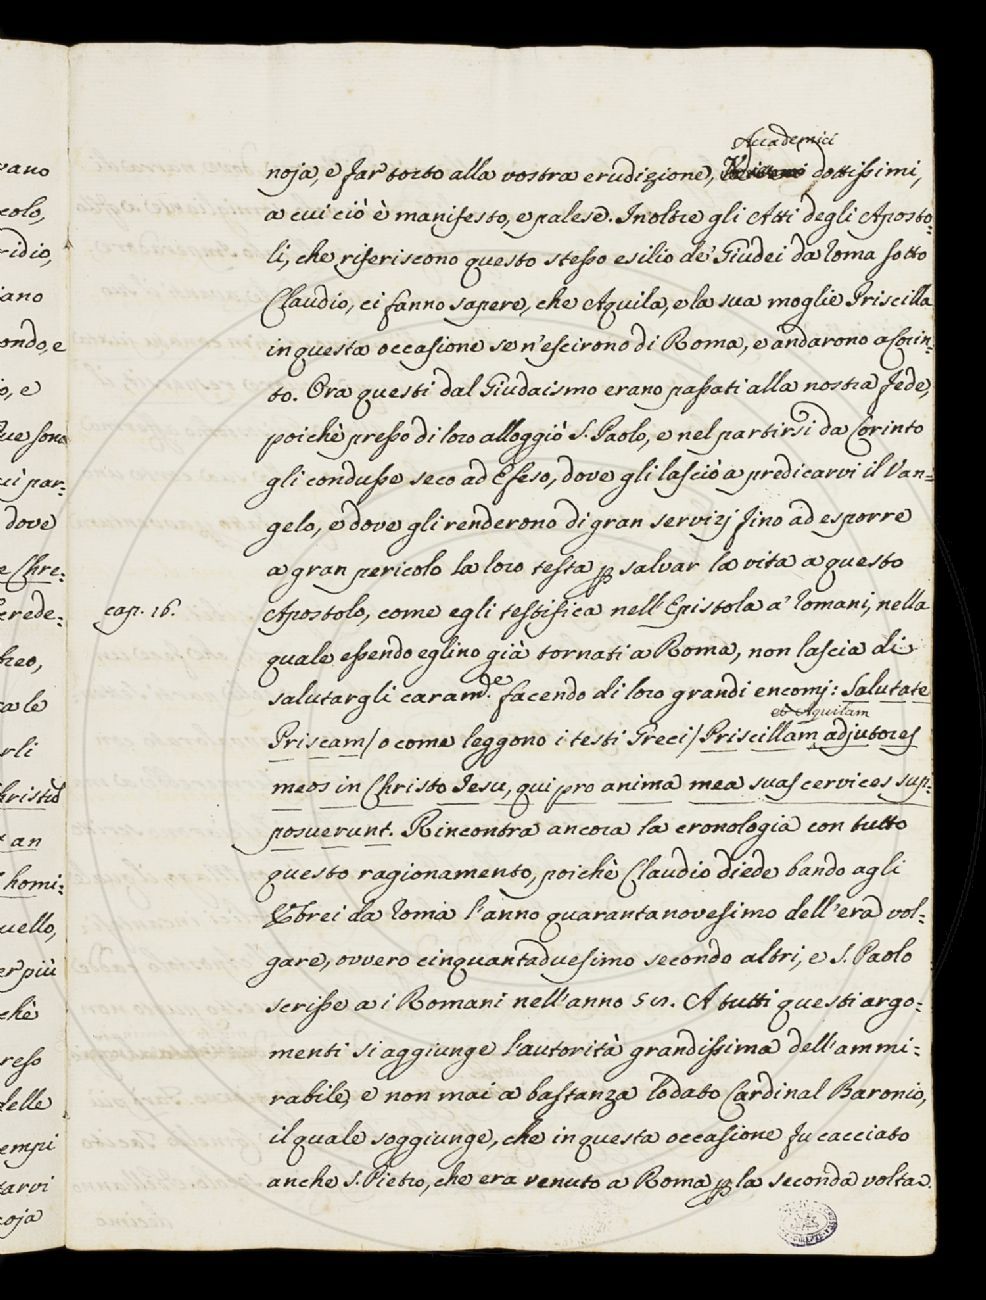 vano
colo,
ridio,
iano
ondo, e
o, e
que sono
ui par=
dove
e Chre=
crede=
breo,
ra le
rli
hristus
t an
homi=
uello,
er più
chè
resso
delle
empi
tarvi
coja
Accademici
noja, e far torto alla vostra erudizione, dottissimi,
a cui ciò è manifesto, e palese. Inoltre gli Atti degli Aposto=
li, che riferiscono questo stesso esilio de' Giudei da Roma sotto
Claudio, ci fanno sapere, che Aquila, e la sua moglie Priscilla
in questa occasione se n'escirono di Roma, e andarono a Corin=
to. Ora questi dal Giudaismo erano passati alla nostra fede,
poichè presso di loro alloggiò S. Paolo, e nel partirsi da Corinto
gli condusse seco ad Efeso, dove gli lasciò a predicarvi il Van=
gelo, e dove gli renderono di gran servizj fino ad esporre
a gran pericolo la loro testa p salvar la vita a questo
cap. 16. Apostolo, come egli testifica nell'Epistola a' Romani, nella
quale essendo eglino già tornati a Roma, non lascia di
salutargli caram.de facendo di loro grandi encomj: Salutate
et Aquilam
Priscam / o come leggono i testi Greci / Priscillam adjutores
meos in Christo Jesu, qui pro anima mea suas cervices sup=
posuerunt. Rincontra ancora la cronologia con tutto
questo ragionamento, poichè Claudio diede bando agli
Ebrei da Roma l'anno quarantanovesimo dell'era vol=
gare, ovvero cinquantaduesimo secondo altri, e S. Paolo
scrisse a i Romani nell'anno A tutti questi argo=
menti si aggiunge l'autorità grandissima dell'ammi=
rabile, e non mai a bastanza lodato Cardinal Baronio,
il quale soggiunge, che in questa occasione fu cacciato
anche S. Pietro, che era venuto a Roma p la seconda volta.